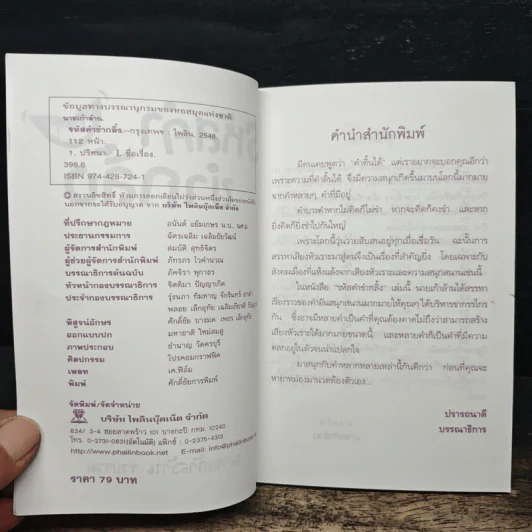 ข้อมูลทางบรรณานุกรมของหอสมุดแห่งชาติ
นายเก้าล้าน.
รหัสคำฮากลิ้ง.--กรุงเทพฯ : ไพลิน, 2546.
112 หน้า.
1. ปริศนา. I. ชื่อเรื่อง.
398.6
ISBN 974-428-724-1
สงวนลิขสิทธิ์ ห้ามการลอกเลียนไม่ว่าส่วนหนึ่งส่วนใดของหนังสือ
นอกจากจะได้รับอนุญาต จาก บริษัท ไพลินบุ๊คเน็ต จำกัด
ที่ปรึกษากฎหมาย อนันต์ แย้มเกษร น.บ. นบ.ท.
ประธานกรรมการ ฉัตรเฉลิม เฉลิมชัยวัฒน์
ผู้จัดการสำนักพิมพ์ สมบัติ สุทธิจิตร
ผู้ช่วยผู้จัดการสำนักพิมพ์ ภัทรภร ไวคำนวณ
บรรณาธิการต้นฉบับ ภัคจิรา พุกาธร
หัวหน้ากองบรรณาธิการ จิตติมา ปัญญาเกิด
ประจำกองบรรณาธิการ รุ่งนภา
พิสูจน์อักษร ศักดิ์ชัย
ออกแบบปก มหาชาติ ใหม่สมสู่
ภาพประกอบ ชำนาญ วัดครบุรี
ศิลปกรรม โปรคอมกราฟฟิค
เพลท เค.ฟิล์ม
พิมพ์ ศักดิ์ชัยการพิมพ์
จัดพิมพ์/จัดจำหน่าย
บริษัท ไพลินบุ๊คเน็ต จำกัด
834/ 3-4 ซอยลาดพร้าว 101 บางกะปิ กทม. 10240
โทร. 0-2731-0621(อัตโนมัติ) แฟ็กซ์ : 0-2375-4313
http://www.phailinbook.net E-mail. info@phailinbook.net
ราคา 79 บาท
คำนำสำนักพิมพ์
มีคนเคยพูดว่า "คำดิ้นได้" แต่เราอยากจะบอกคุณอีกว่า
เพราะความที่คำดิ้นได้ จึงมีความสนุกเกิดขึ้นมาบนโลกนี้มากมาย
จากคำหลายๆ คำที่มีอยู่
คำบางคำหากไม่คิดก็ไม่ขำ หากจะคิดก็คงขำ และหาก
ยิ่งคิดก็ยิ่งขำไปกันใหญ่
เพราะโลกนี้วุ่นวายสับสนอยู่ทุกเมื่อเชื่อวัน ฉะนั้นการ
สรรหาเสียงหัวเราะมาสู่ตนจึงเป็นเรื่องที่สำคัญยิ่ง โดยเฉพาะกับ
สังคมเมืองที่แห้งแล้งจากเสียงหัวเราะและความสนุกสนานเช่นนี้
ในหนังสือ "รหัสคำฮากลิ้ง" เล่มนี้ นายเก้าล้านได้สรรหา
เรื่องราวของคำอันสนุกสนานมากมายให้คุณๆ ได้บริหารขากรรไกร
กัน ซึ่งอาจมีหลายคำเป็นคำที่คุณต้องคาดไม่ถึงว่าสามารถสร้าง
เสียงหัวเราะได้มากมายขนาดนี้ และหลายคำก็เป็นคำที่มีความ
ตลกอยู่ในตัวจนน่าแปลกใจ
มาสนุกกับคำหลากหลายเหล่านี้กันดีกว่า ก่อนที่คุณจะ
หายาหม่องมานวดท้องตัวเอง...
ปรารถนาดี
บรรณาธิการ